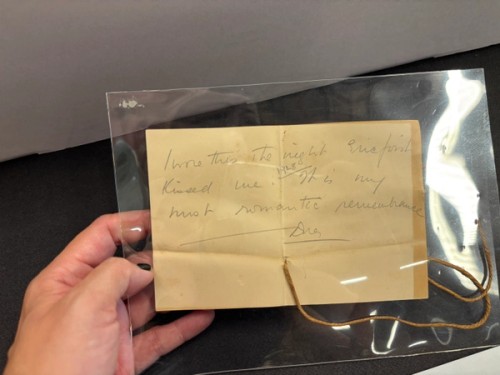 I wore this the night Eric first
kissed me. It is my
most romantic remembrance